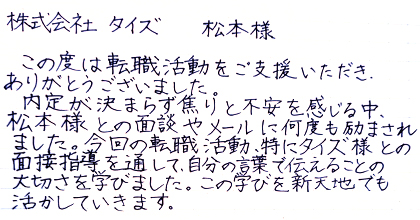 株式会社 タイズ　松本様
この度は転職活動をご支援いただき、
ありがとうございました。
内定が決まらず焦りと不安を感じる中、
松本様との面談やメールに何度も励まされ
ました。今回の転職活動、特にタイズ様との
面接指導を通して、自分の言葉で伝えることの
大切さを学びました。この学びを新天地でも
活かしていきます。